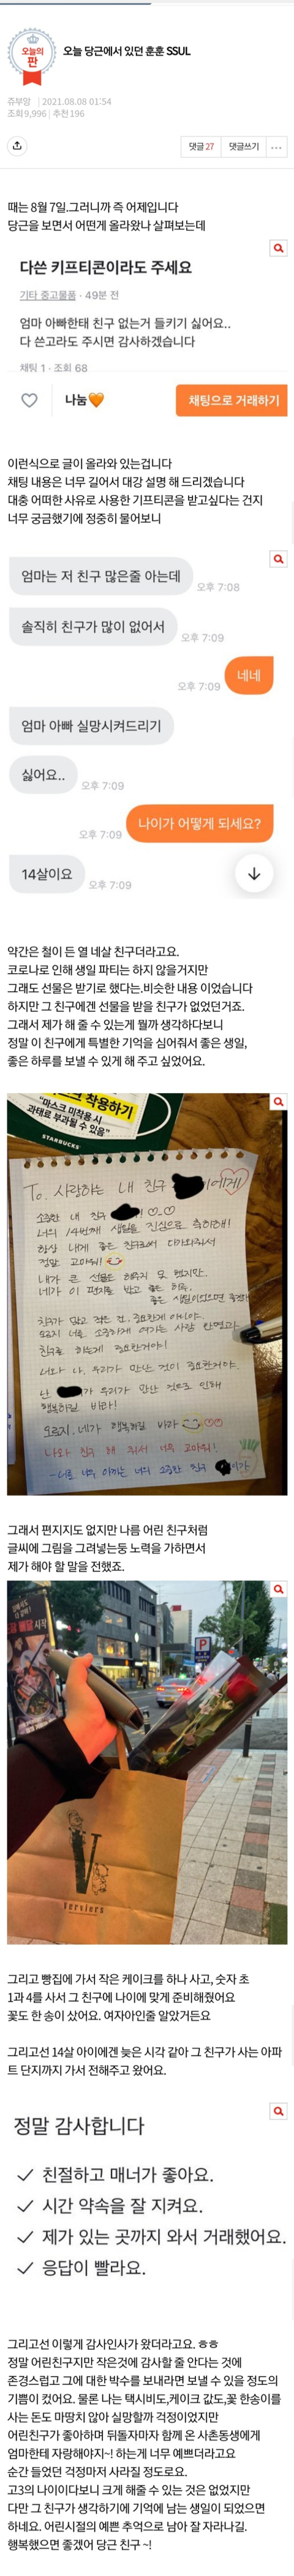 오늘의
판
오늘 당근에서 있던 훈훈 SSUL
쥬부앙 | 2021.08.08 01:54
조회 9,996 | 추천 196
댓글 27
댓글쓰기
때는 8월 7일.그러니까 즉 어제입니다
당근을 보면서 어떤게 올라왔나 살펴보는데
다쓴 키프티콘이라도 주세요
기타 중고물품 · 49분 전
엄마 아빠한태 친구 없는거 들키기 싫어요..
다 쓴고라도 주시면 감사하겠습니다
채팅 1 · 조회 68
나눔🧡
채팅으로 거래하기
이런식으로 글이 올라와 있는겁니다
채팅 내용은 너무 길어서 대강 설명 해 드리겠습니다
대충 어떠한 사유로 사용한 기프티콘을 받고싶다는 건지
너무 궁금했기에 정중히 물어보니
엄마는 저 친구 많은줄 아는데
오후 7:08
솔직히 친구가 많이 없어서
오후 7:09
네네
오후 7:09
엄마 아빠 실망시켜드리기
싫어요..
오후 7:09
나이가 어떻게 되세요?
오후 7:09
14살이요
오후 7:09
약간은 철이 든 열 네살 친구더라고요.
코로나로 인해 생일 파티는 하지 않을거지만
그래도 선물은 받기로 했다는.비슷한 내용 이었습니다
하지만 그 친구에겐 선물을 받을 친구가 없었던거죠.
그래서 제가 해 줄 수 있는게 뭘까 생각하다보니
정말 이 친구에게 특별한 기억을 심어줘서 좋은 생일,
좋은 하루를 보낼 수 있게 해 주고 싶었어요.
착용하기
"마스크 미착용 시
과태료 부과될 수 있음"
STARBUCKS
To. 사랑하는 내 친구 이에게!
소중한 내 친구
너의 14번째 생일을 진심으로 축하해!
항상 내게 좋은 친구로써 다가와줘서
정말 고마워!
내가 큰 선물은 해주지 못 했지만,
네가 이 편지를 받고 좋은 하루,
좋은 생일이었으면 좋겠어
친구가 많고 적은 건 중요한게 아니야.
너를 소중하게 여기는 사람 한명이라도
친구로 하는게 중요한거야!
너와 나 우리가 만난 것이 중요한거야.
난 가 우리가 만난 것으로 인해
행복하길 바라!
오로지 네가 행복하길 바라
나와 친구 해 줘서 너무 고마워!
-너를 너무 아끼는 너의 소중한 친구
그래서 편지지도 없지만 나름 어린 친구처럼
글씨에 그림을 그려넣는둥 노력을 가하면서
제가 해야 할 말을 전했죠.
배달 시작
P
V
verviers
그리고 빵집에 가서 작은 케이크를 하나 사고, 숫자 초
1과 4를 사서 그 친구에 나이에 맞게 준비해줬어요
꽃도 한 송이 샀어요. 여자아인줄 알았거든요
그리고선 14살 아이에겐 늦은 시각 같아 그 친구가 사는 아파
트 단지까지 가서 전해주고 왔어요.
정말 감사합니다
✓ 친절하고 매너가 좋아요.
✓ 시간 약속을 잘 지켜요.
✓ 제가 있는 곳까지 와서 거래했어요.
✓ 응답이 빨라요.
그리고선 이렇게 감사인사가 왔더라고요. ㅎㅎ
정말 어린친구지만 작은것에 감사할 줄 안다는 것에
존경스럽고 그에 대한 박수를 보내라면 보낼 수 있을 정도의
기쁨이 컸어요. 물론 나는 택시비도,케이크 값도,꽃 한송이를
사는 돈도 마땅치 않아 실망할까 걱정이었지만
어린친구가 좋아하며 뒤돌자마자 함께 온 사촌동생에게
엄마한테 자랑해야지~! 하는게 너무 예쁘더라고요
순간 들었던 걱정마저 사라질 정도로요.
고3의 나이이다보니 크게 해줄 수 있는 것은 없었지만
다만 그 친구가 생각하기에 기억에 남는 생일이 되었으면
하네요. 어린시절의 예쁜 추억으로 남아 잘 자라나길.
행복했으면 좋겠어 당근 친구 ~!